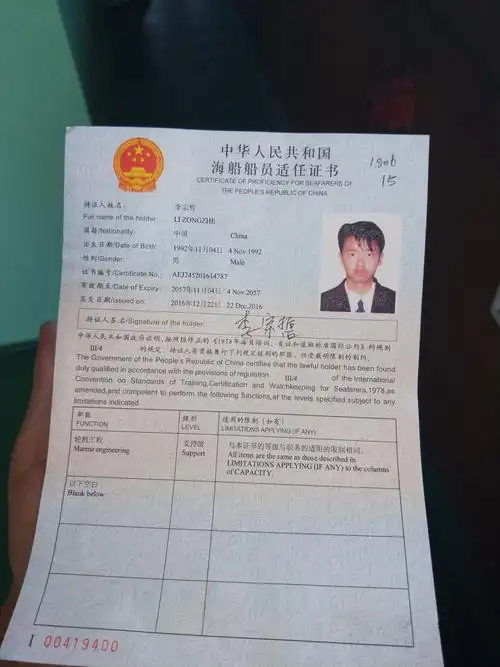 中华人民共和国
海船船员适任证书
CERTIFICATE OF PROFICIENCY FOR SEAFARERS OF
THE PEOPLE'S REPUBLIC OF CHINA
1806
15
持证人姓名: 李宗哲
Full name of the holder: LI ZONGZHE
国籍/Nationality: 中国 China
出生日期/Date of Birth: 1992年11月04日 4 Nov.1992
性别/Gender: 男 Male
证书编号/Certificate No.: AEJ245201614787
有效期至/Date of Expiry: 2057年11月04日 4 Nov.2057
签发日期/Issued on: 2016年12月22日 22 Dec.2016
持证人签名/Signature of the holder: 李宗哲
中华人民共和国政府证明,按照经修正的《1978年海员培训、发证和值班标准国际公约》的规则
III/4 的规定,持证人有资格履行下列规定级别的职能,但受载明限制的制约。
The Government of the People's Republic of China certifies that the lawful holder has been found
duly qualified in accordance with the provisions of regulation III/4 of the International
Convention on Standards of Training,Certification and Watchkeeping for Seafarers,1978,as
amended,and competent to perform the following functions,at the levels specified,subject to any
limitations indicated.
职能 级别 适用的限制(如有)
FUNCTION LEVEL LIMITATIONS APPLYING (IF ANY)
轮机工程 支持级 与本证书的等级与职务的适用的限制相同。
Marine engineering Support All items are the same as those described in
LIMITATIONS APPLYING (IF ANY) to the columns
of CAPACITY.
以下空白
Blank below
I 00419400